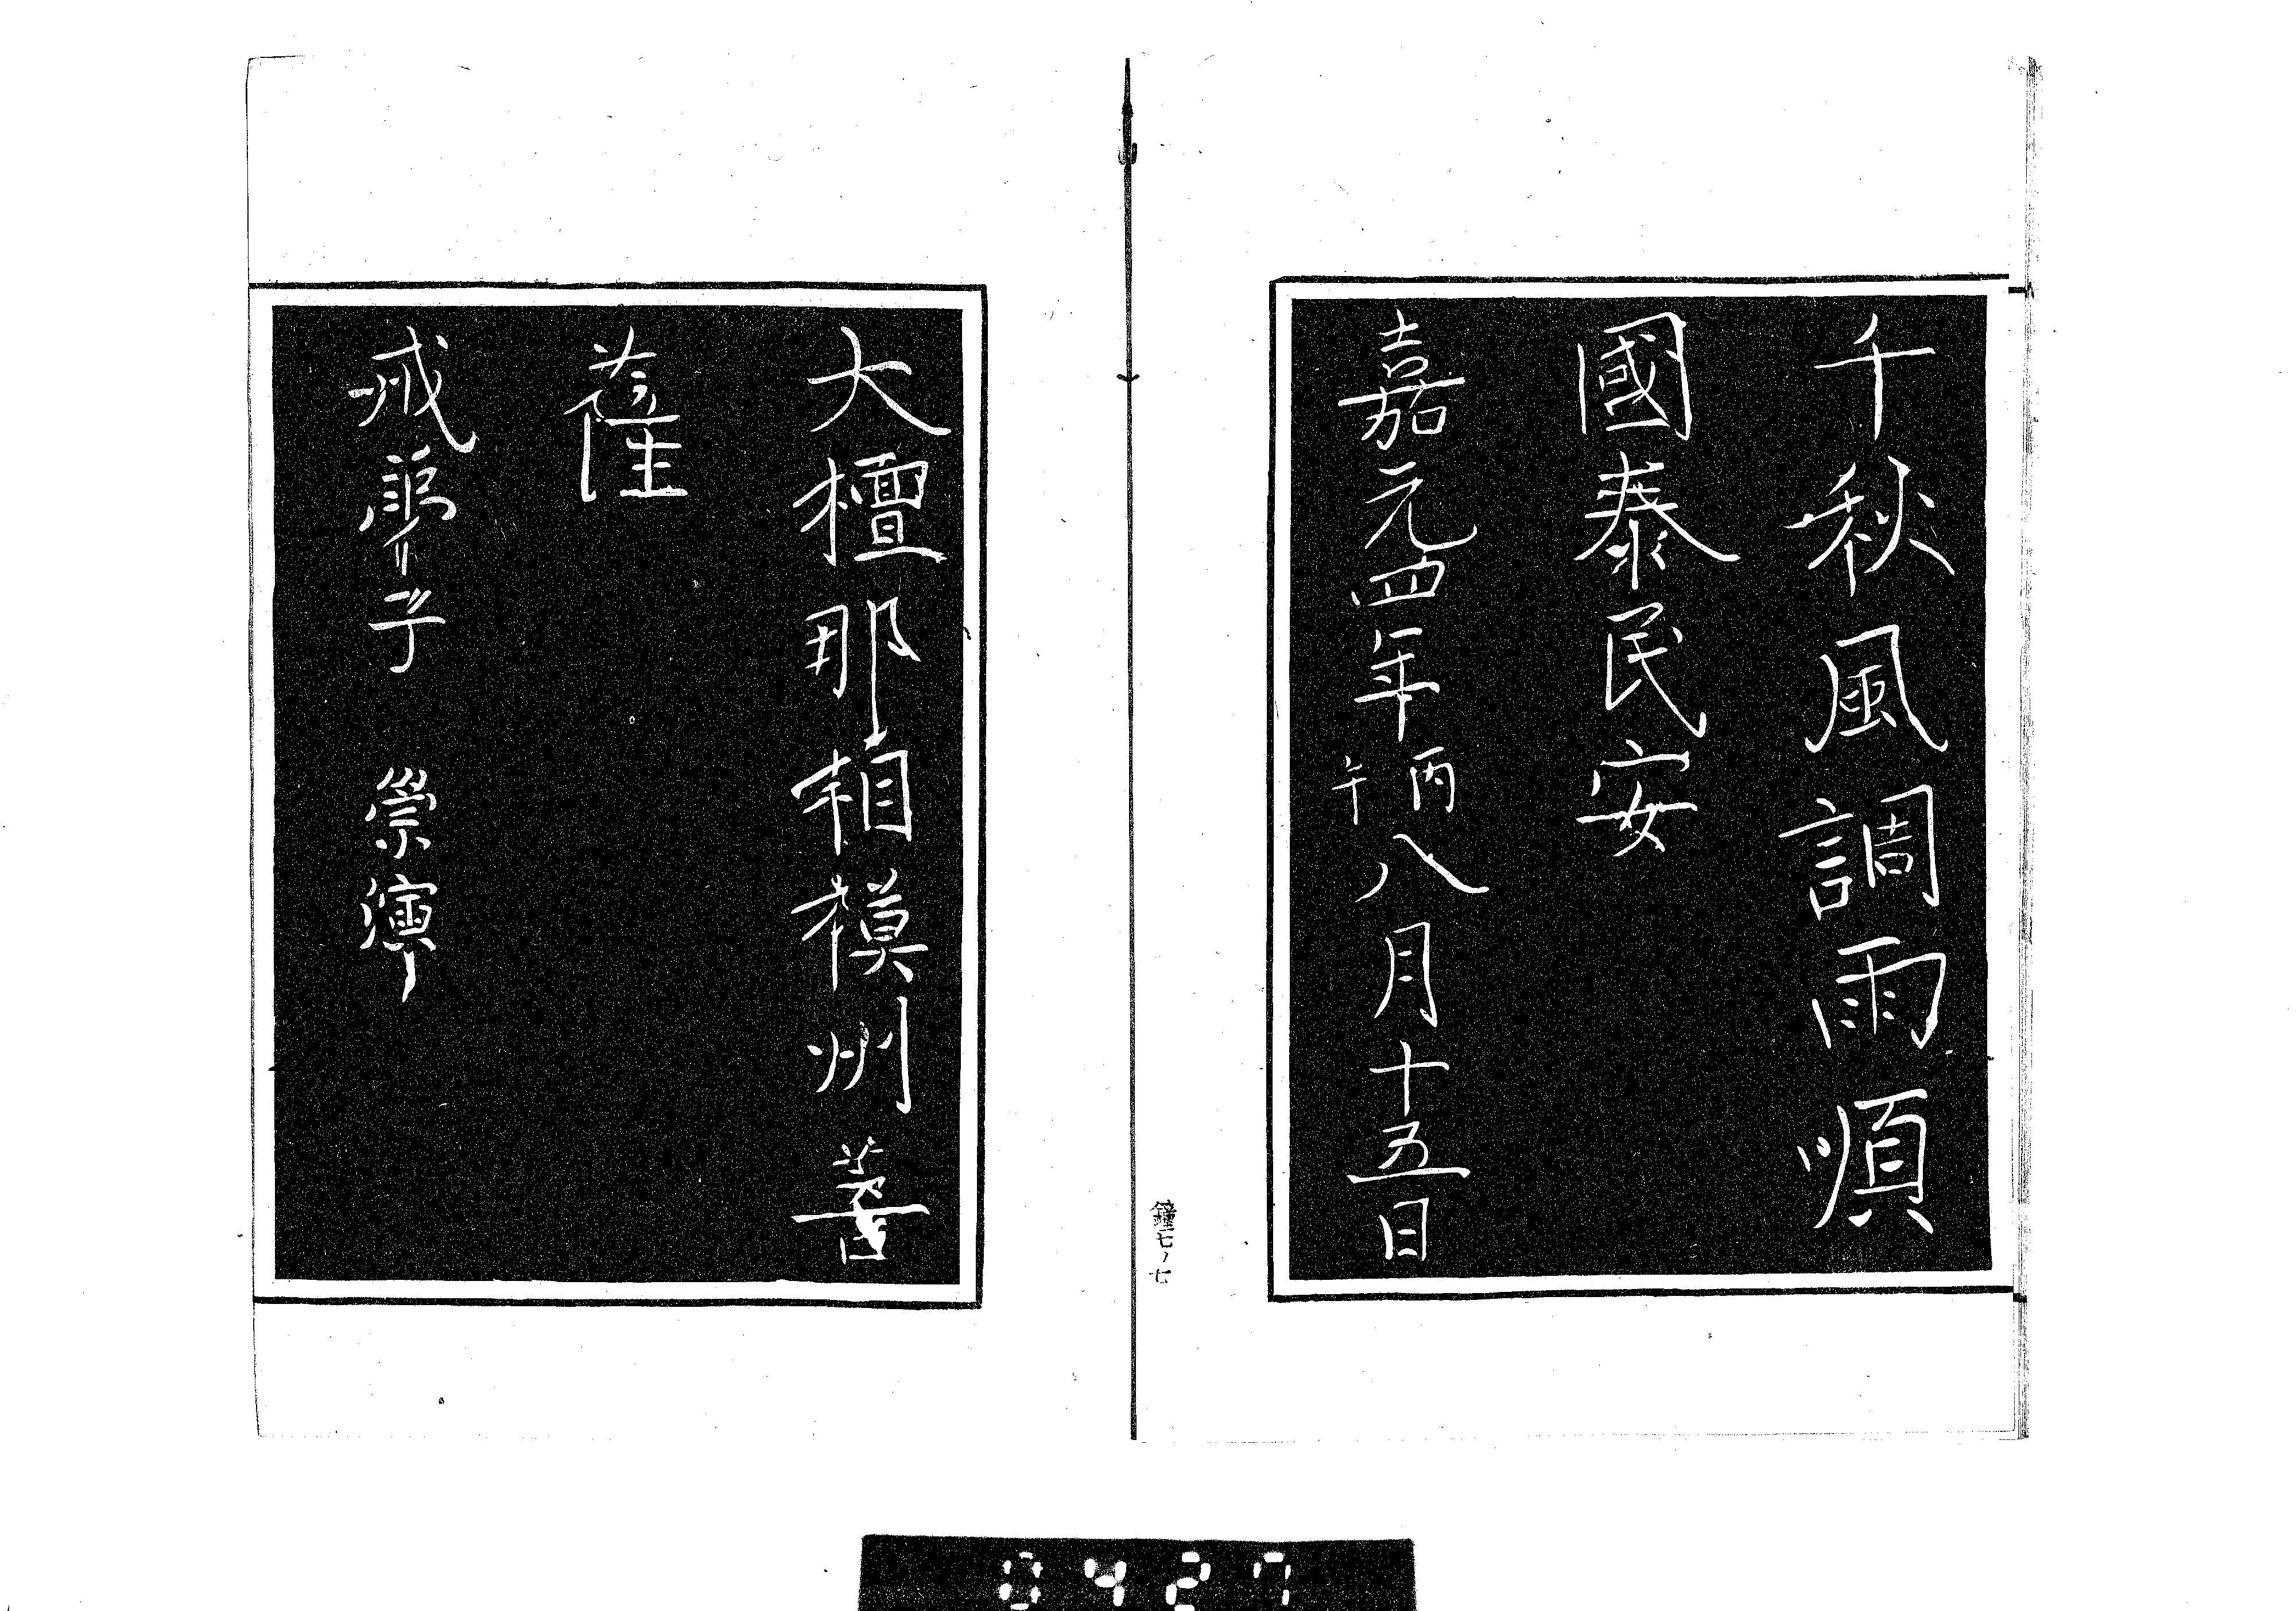 千秋風調雨順
國泰民安
嘉元四年丙午八月十五日
鐘七ノ七
大檀那相模州菩
薩
戒弟子　崇演
0427